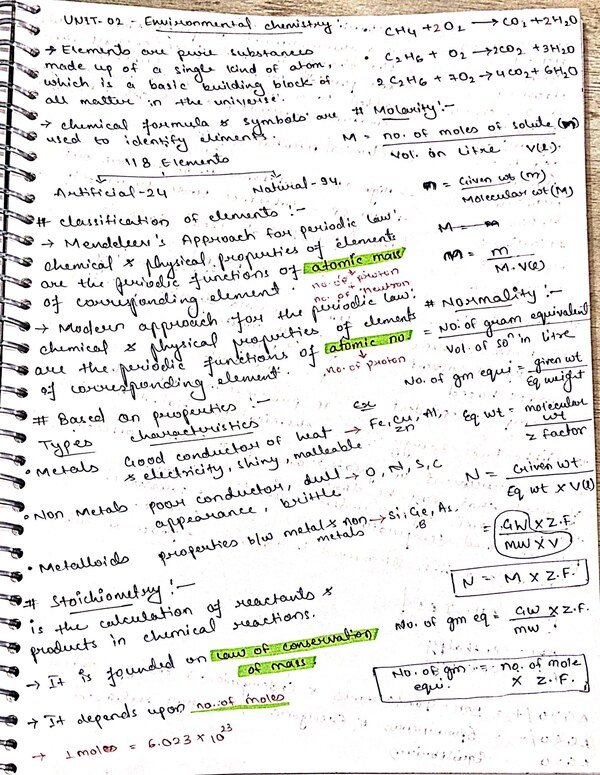 UNIT-02 - Environmental chemistry :-
→ Elements are pure substances
made up of a single kind of atom,
which is a basic building block of
all matter in the universe.
→ chemical formula & symbols are
used to identify elements.
118 Elements
Artificial-24 Natural-94.
# Classification of elements :-
→ Mendeleev's Approach for periodic law:
chemical & physical properties of elements
are the periodic functions of atomic mass
of corresponding element.
no. of proton
no. of neutron
→ Modern approach for the periodic law:
chemical & physical properties of elements
are the periodic functions of atomic no.
of corresponding element.
no. of proton
# Based on properties :-
Types characteristics Ex
• Metals Good conductor of heat → Fe, Cu, Al,
& electricity, shiny, malleable Zn
• Non Metals poor conductor, dull → O, N, S, C
appearance, brittle
• Metalloids properties b/w metal & non → Si, Ge, As.
metals B
# Stoichiometry :-
is the calculation of reactants &
products in chemical reactions.
→ It is founded on law of conservation
of mass
→ It depends upon no. of moles
→ 1 moles = 6.023 × 10²³
• CH4 + 2O2 → CO2 + 2H2O
• C2H6 + O2 → 2CO2 + 3H2O
2C2H6 + 7O2 → 4CO2 + 6H2O
# Molarity :-
M = no. of moles of solute
Vol. in litre V(l).
= Given wt (m)
Molecular wt (M)
M =
= m
M. V(l)
# Normality :-
= No. of gram equivalent
Vol. of solⁿ in litre
No. of gm equi = given wt
Eq weight
Eq. wt = molecular
wt
Z factor
N = Given wt
Eq wt × V(l)
= GW × Z.F.
MW × V
N = M × Z.F.
No. of gm eq = GW × Z.F.
mw
No. of gm = no. of mole
equi. × Z.F.